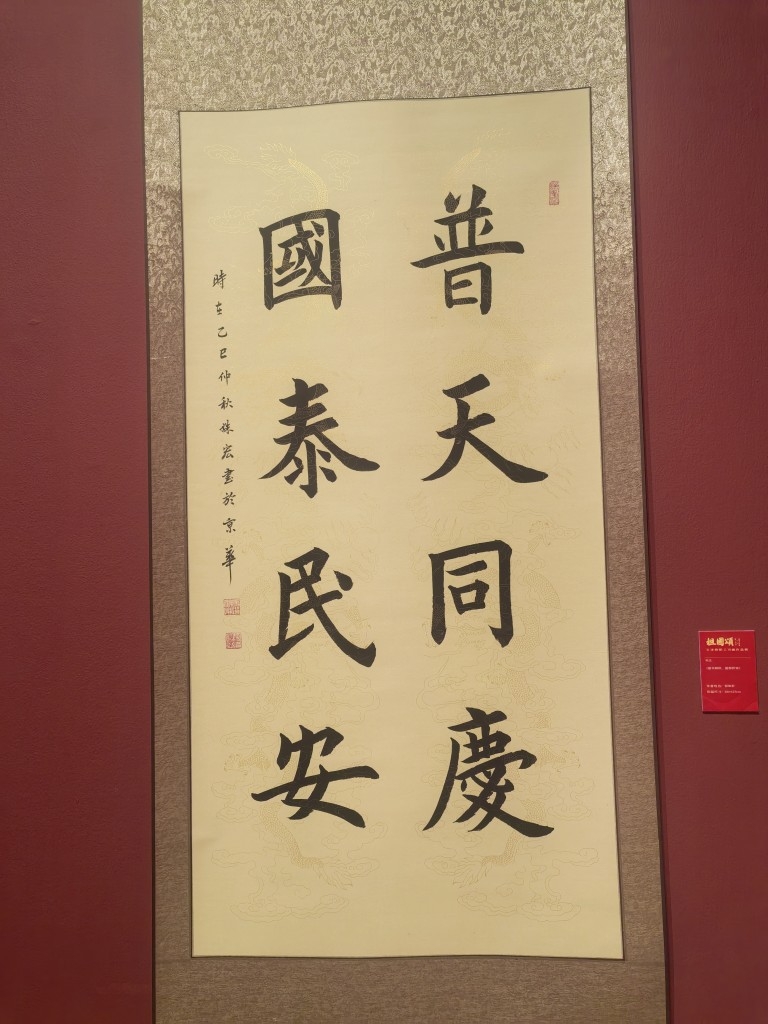 普天同慶
國泰民安
時在乙巳仲秋姝宏書於京華
祖國頌